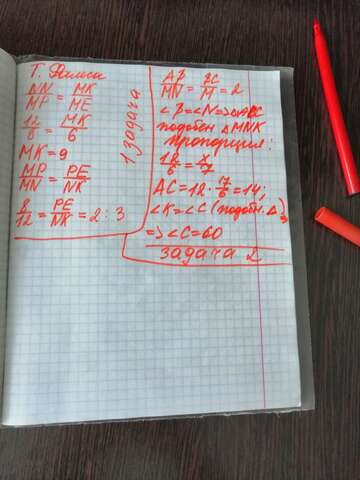 Т. Фалеса
NN/MP = MK/ME
12/8 = MK/6
MK = 9
MP/MN = PE/NK
8/12 = PE/NK = 2 : 3
1 задача
AB/MN = BC/M = 2
∠B = ∠N => ABC
подобен △MNK
пропорция:
12/6 = x/7
AC = 12 · 7/6 = 14;
∠K = ∠C (подобн. △)
=> ∠C = 60
задача 2